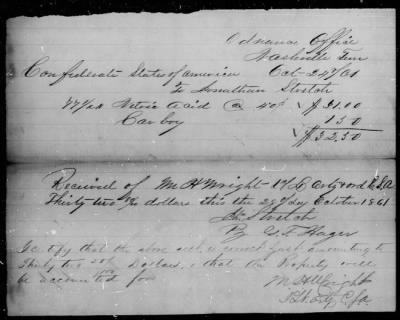 Ordnance Office
Nashville Tenn
Confederate States of America Oct 24/61
To Jonathan Stretch
Nitric Acid @ 40¢ $31.00
Carboy 1 50
$32.50
Received of M H Wright 1st Lt Arty & Ord C.S.A
Thirty two 50/100 dollars this the 28th day October 1861
Jon Stretch
By G F Hager
I certify that the above acct is correct & just amounting to
Thirty two 50/100 Dollars, & that the Property will
be accounted for
M H Wright
Lt Arty C.S.A